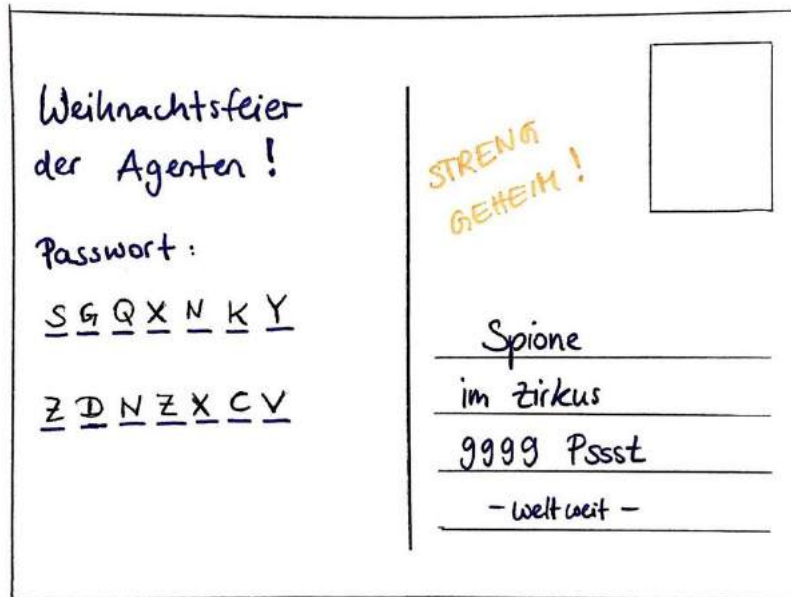 Weihnachtsfeier
der Agenten!
Passwort:
S G Q X N K Y
Z D N Z X C V
STRENG
GEHEIM!
Spione
im Zirkus
9999 Pssst
- weltweit -